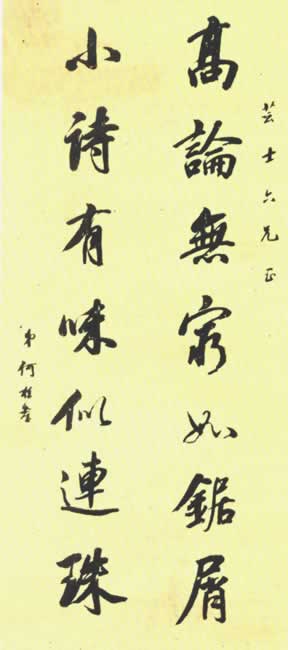 芸士六兄正
高論無窮如鋸屑
小詩有味似連珠
弟何